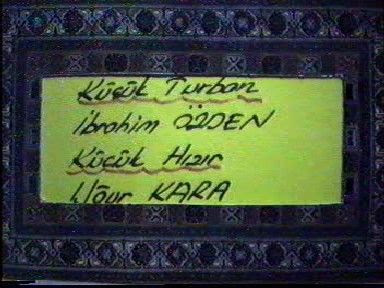 Küçük Turban
İbrahim ÖZDEN
Küçük Hızır
Uğur KARA